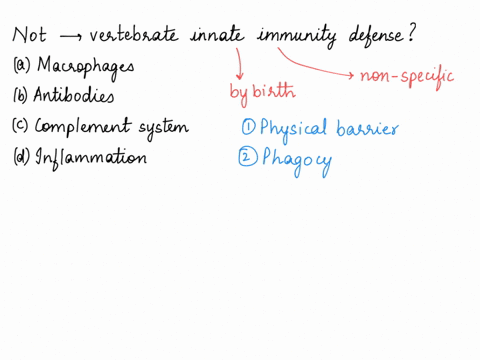 Not → vertebrate innate immunity defense?
(a) Macrophages
non-specific
(b) Antibodies
by birth
(c) Complement system
① Physical barrier
(d) Inflammation
② Phagocy